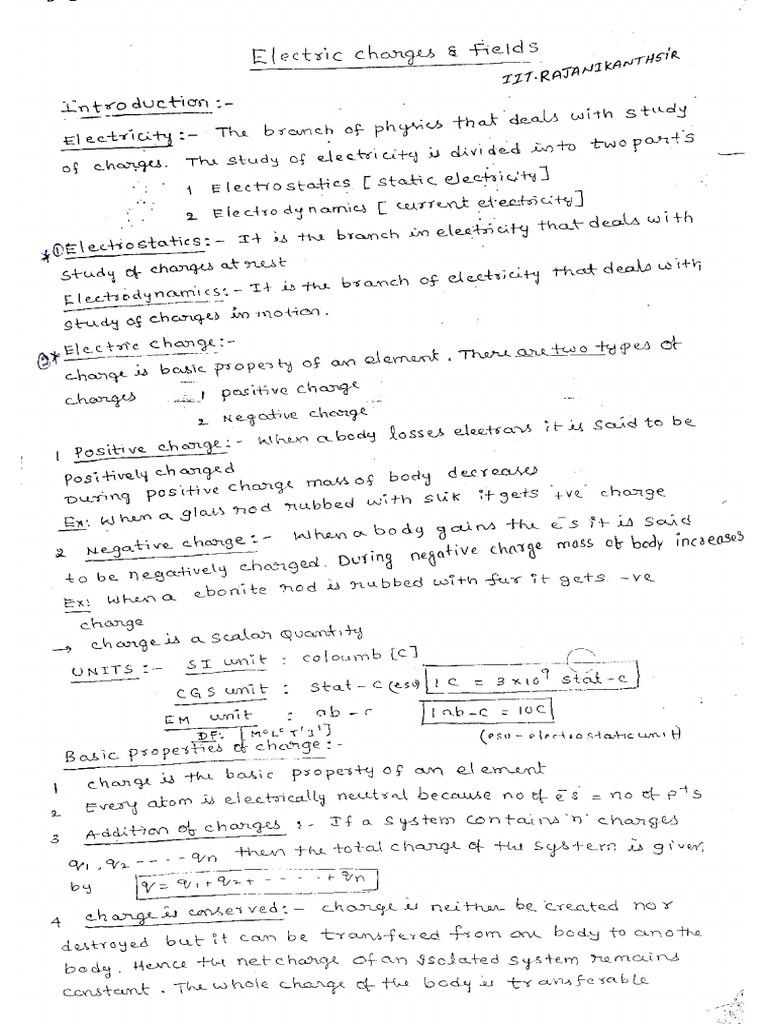 Electric charges & fields
IIT. RAJANIKANTH SIR
Introduction :-
Electricity :- The branch of physics that deals with study
of charges. The study of electricity is divided into two parts
1 Electrostatics [ static electricity ]
2 Electrodynamics [ current electricity ]
*① Electrostatics :- It is the branch in electricity that deals with
study of charges at rest
Electrodynamics :- It is the branch of electricity that deals with
study of charges in motion.
②* Electric charge :-
charge is basic property of an element. There are two types of
charges 1 positive charge
2 Negative charge
1 Positive charge :- When a body losses electrons it is said to be
positively charged
During positive charge mass of body decreases
Ex: When a glass rod rubbed with silk it gets '+ve' charge
2 Negative charge :- When a body gains the e̅s it is said
to be negatively charged. During negative charge mass of body increases
Ex: When a ebonite rod is rubbed with fur it gets -ve
charge
→ charge is a scalar quantity
UNITS :- SI unit : coloumb [C]
CGS unit : stat-c (esu) 1 C = 3×10⁹ stat-c
EM unit : ab-c 1 ab-c = 10C
DF: [M⁰L⁰T¹I¹] (esu-electrostatic unit)
Basic properties of charge :-
1 charge is the basic property of an element
2 Every atom is electrically neutral because no of e̅s = no of p⁺s
3 Addition of charges :- If a system contains 'n' charges
q₁, q₂ ---- qn then the total charge of the system is given
by q = q₁ + q₂ + ----- + qn
4 charge is conserved :- charge is neither be created nor
destroyed but it can be transfered from one body to anothe
body. Hence the net charge of an isolated system remains
constant. The whole charge of the body is transferable